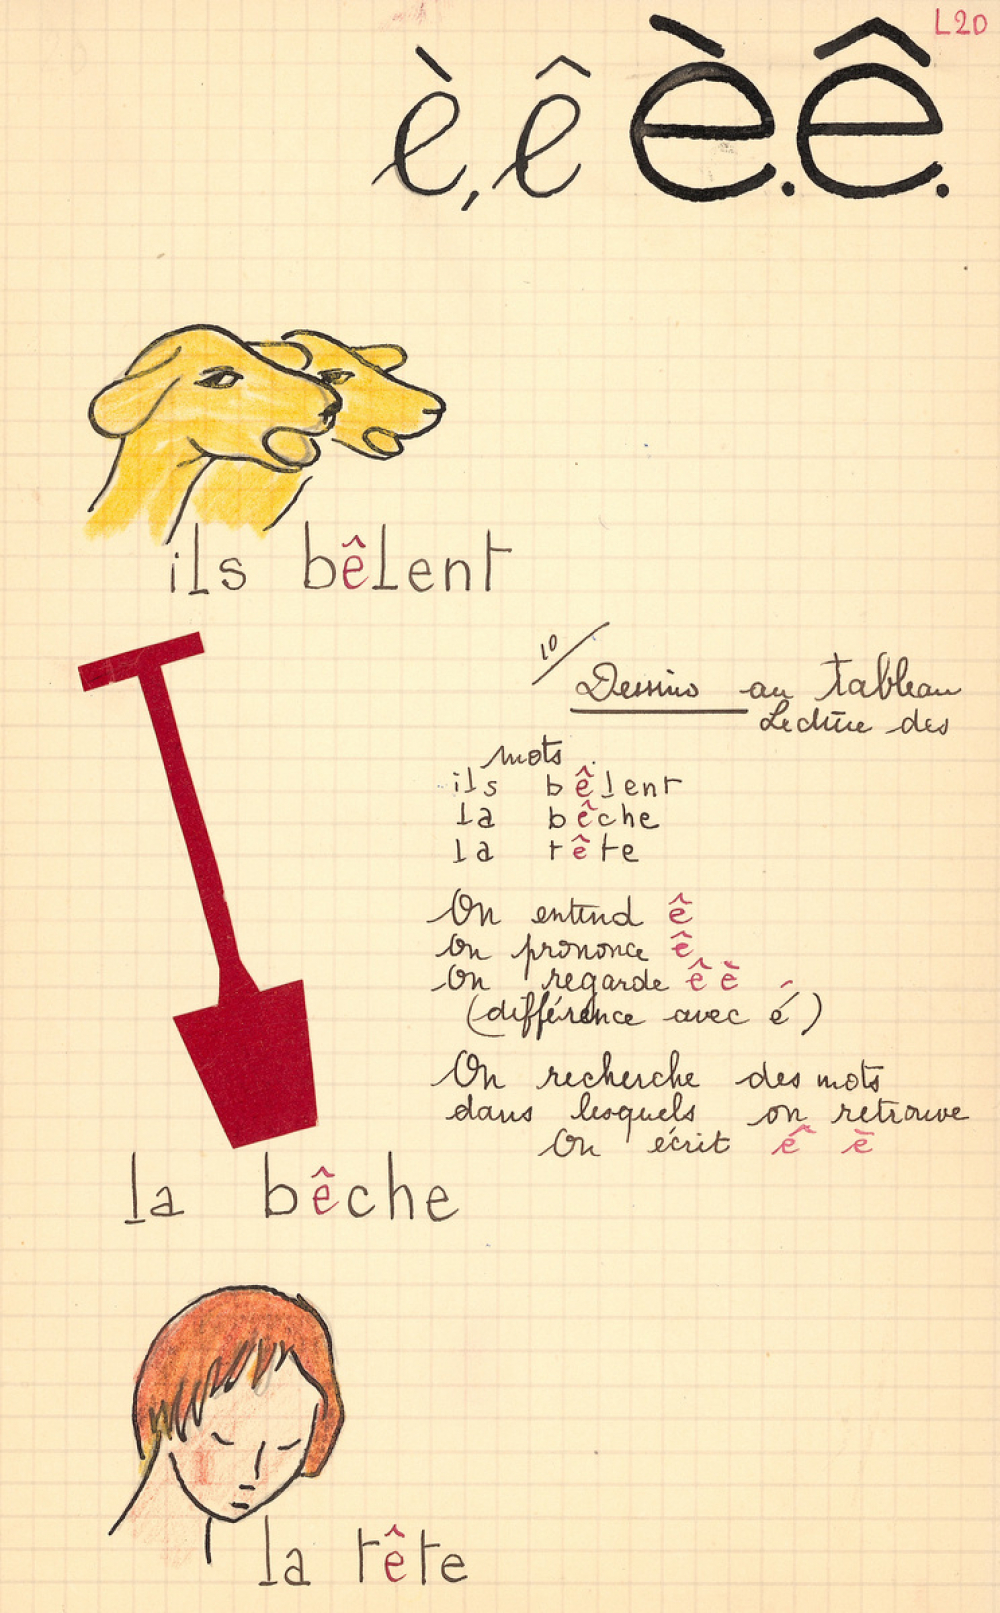 L20
è, ê è. ê.
ils bêlent
1º/ Dessins au tableau
Lecture des
mots
ils bêlent
la bêche
la tête
On entend ê
on prononce ê
On regarde ê è
(différence avec é)
On recherche des mots
dans lesquels on retrouve
On écrit ê è
la bêche
la tête